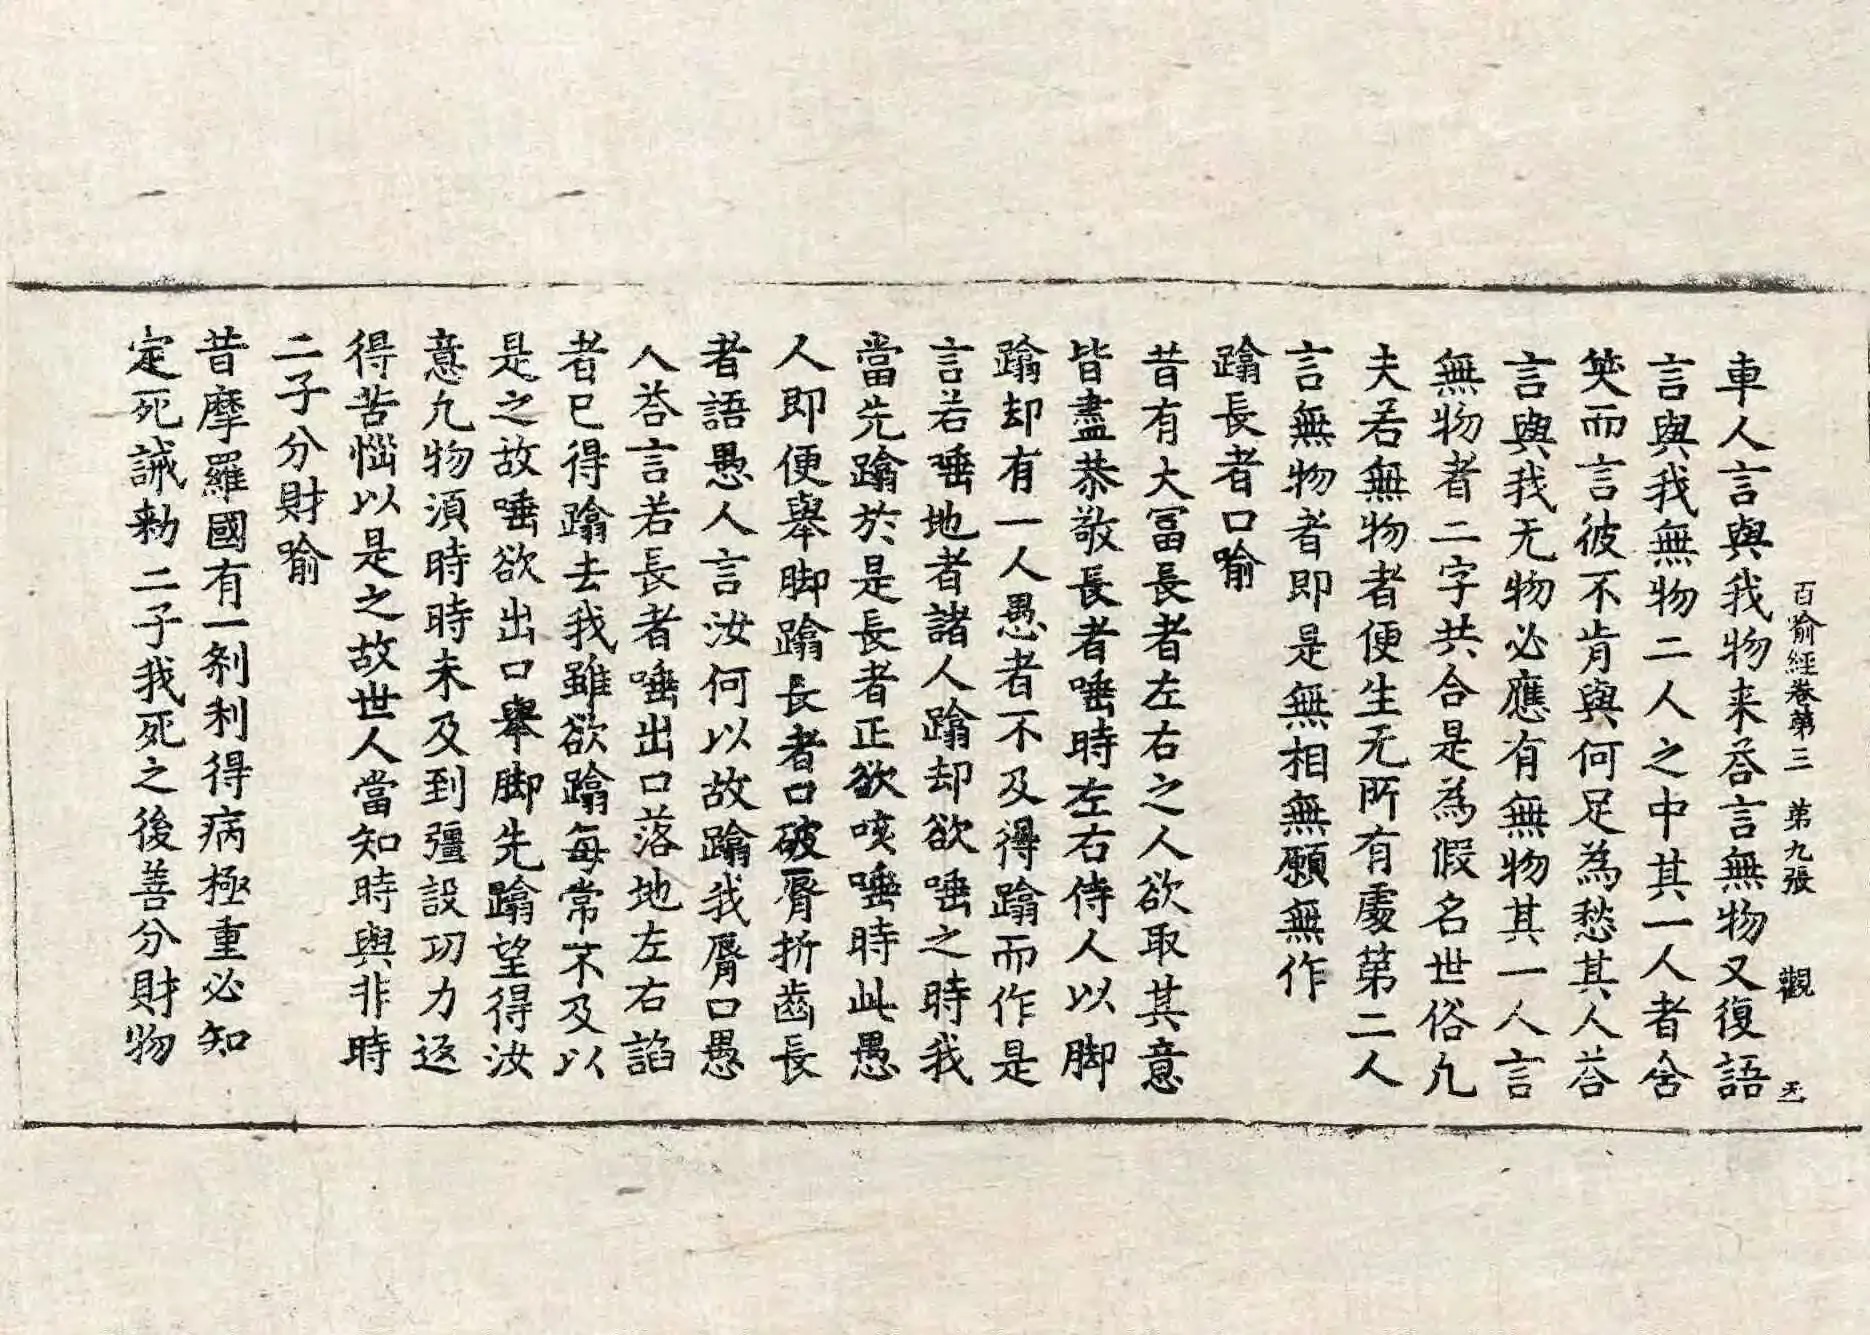 百喻經卷第三　第九張　觀
車人言與我物来荅言無物又復語
言與我無物二人之中其一人者含
笑而言彼不肯與何足為愁其人荅
言與我无物必應有無物其一人言
無物者二字共合是為假名世俗凢
夫若無物者便生无所有處第二人
言無物者即是無相無願無作
蹹長者口喻
昔有大冨長者左右之人欲取其意
皆盡恭敬長者唾時左右侍人以脚
蹹却有一人愚者不及得蹹而作是
言若唾地者諸人蹹却欲唾之時我
當先蹹於是長者正欲咳唾時此愚
人即便舉脚蹹長者口破脣折齒長
者語愚人言汝何以故蹹我脣口愚
人荅言若長者唾出口落地左右諂
者已得蹹去我雖欲蹹每常不及以
是之故唾欲出口舉脚先蹹望得汝
意凢物湏時時未及到彊設功力返
得苦惱以是之故世人當知時與非時
二子分財喻
昔摩羅國有一刹利得病極重必知
定死誡勑二子我死之後善分財物